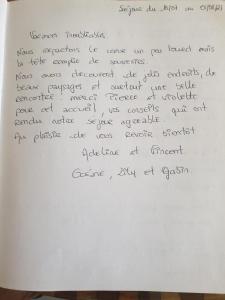 Séjour du 16/07 au
Vacances inoubliables
Nous repartons le cœur un peu lourd mais
la tête remplie de souvenirs.
Nous avons découvert de jolis endroits, de
beaux paysages et surtout une belle
rencontre. merci Pierre et Violette
pour cet accueil, vos conseils qui ont
rendus notre séjour agréable.
Au plaisir de vous revoir bientôt
Adeline et Vincent.
Lily et Gabin.